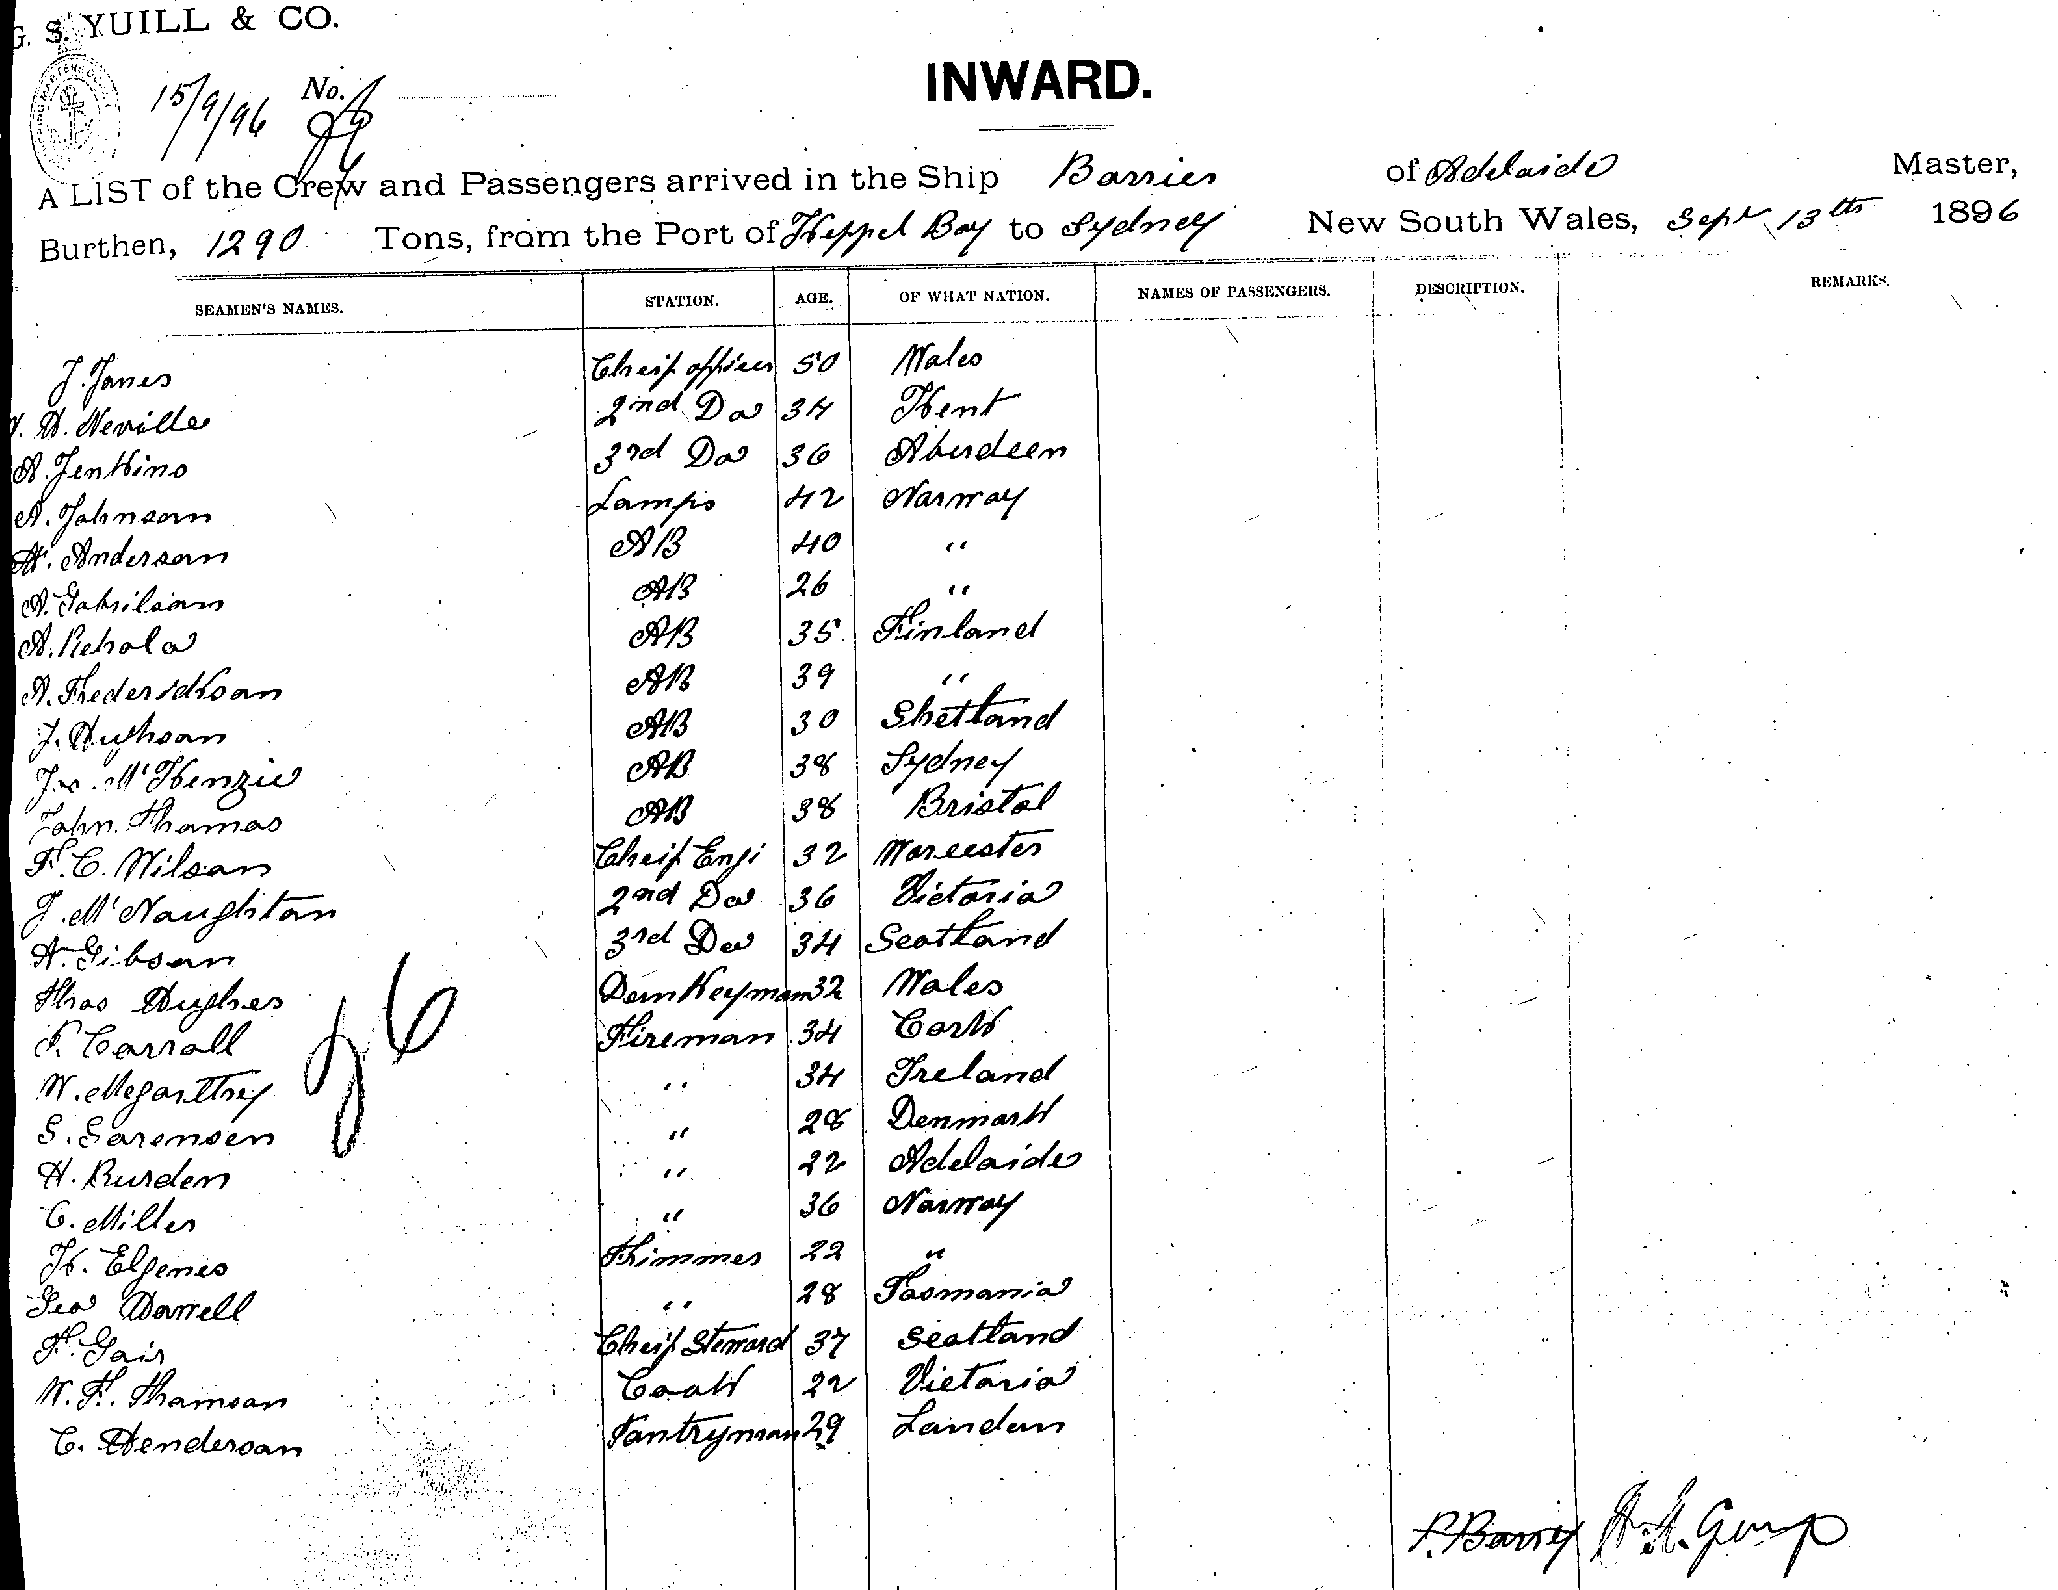 G. S. YUILL & CO.
INWARD.
15/9/96 No.
A LIST of the Crew and Passengers arrived in the Ship Barrier of Adelaide Master,
Burthen, 1290 Tons, from the Port of Keppel Bay to Sydney New South Wales, Sept 13th 1896
SEAMEN'S NAMES. STATION. AGE. OF WHAT NATION. NAMES OF PASSENGERS. DESCRIPTION. REMARKS.
J. Jones Cheif officer 50 Wales
H. Neville 2nd Do 34 Kent
A. Jenkins 3rd Do 36 Aberdeen
A. Johnson Lamps 42 Norway
Anderson AB 40 "
A. AB 26 "
A. Rehola AB 35 Finland
A. Frederickson AB 39 "
J. Hughson AB 30 Shetland
Jas. McKenzie AB 38 Sydney
John Thomas AB 38 Bristol
F. C. Wilson Cheif Engi 32 Worcester
J. McNaughton 2nd Do 36 Victoria
A. Gibson 3rd Do 34 Scotland
Thos Hughes Donkeyman 32 Wales
F. Carroll Fireman 34 Cork
W. Megarthey " 34 Ireland
S. Sorensen " 28 Denmark
H. Burden " 22 Adelaide
C. Miller " 36 Norway
K. Elgenes Trimmer 22 "
Geo Darrell " 28 Tasmania
F. Gair Cheif Steward 37 Scotland
W. F. Thomson Cook 22 Victoria
C. Henderson Pantryman 29 London
26
P. Barry